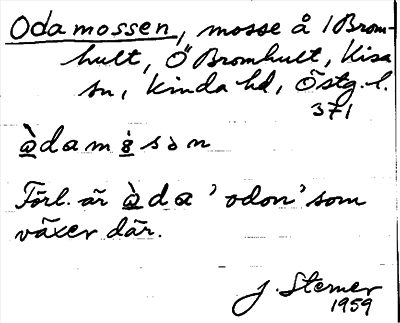 Odamossen, mosse å 1 Brom-
hult, Ö Bromhult, Kisa
sn, Kinda hd, Östg. l.
371
àdamòsòn
Förl. är àda 'odon' som
växer där.
J. Sterner
1959